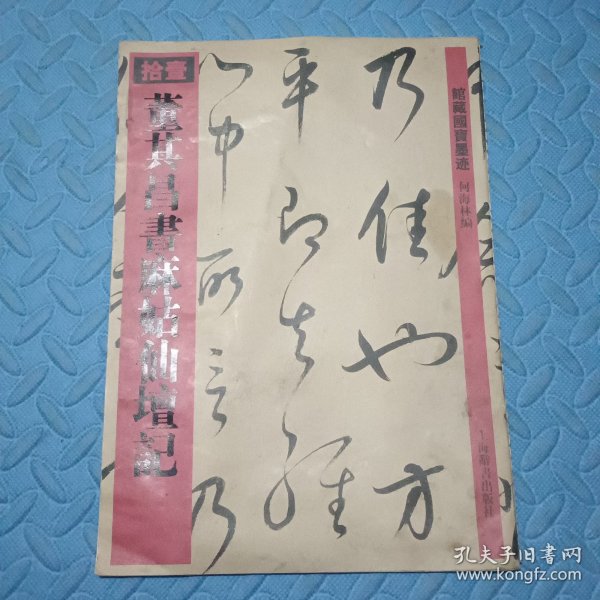 拾壹
董其昌書麻姑仙壇記
館藏國寶墨迹
何海林編
上海辭書出版社
乃佳也方
平即去經
心中所言乃
孔夫子旧書网
www.kongfz.com